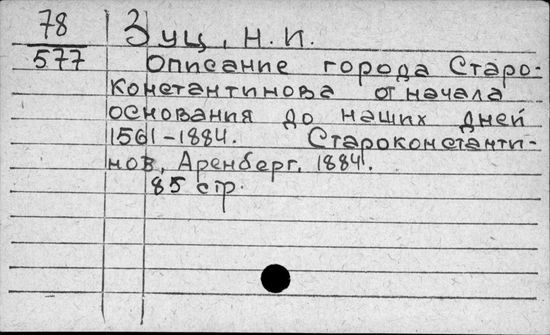 78
577
Зуц, Н. И.
Описание города Старо-
константинова от начала
основания до наших дней
1561-1884. Староконстанти-
нов, Аренберг, 1884.
85 стр.